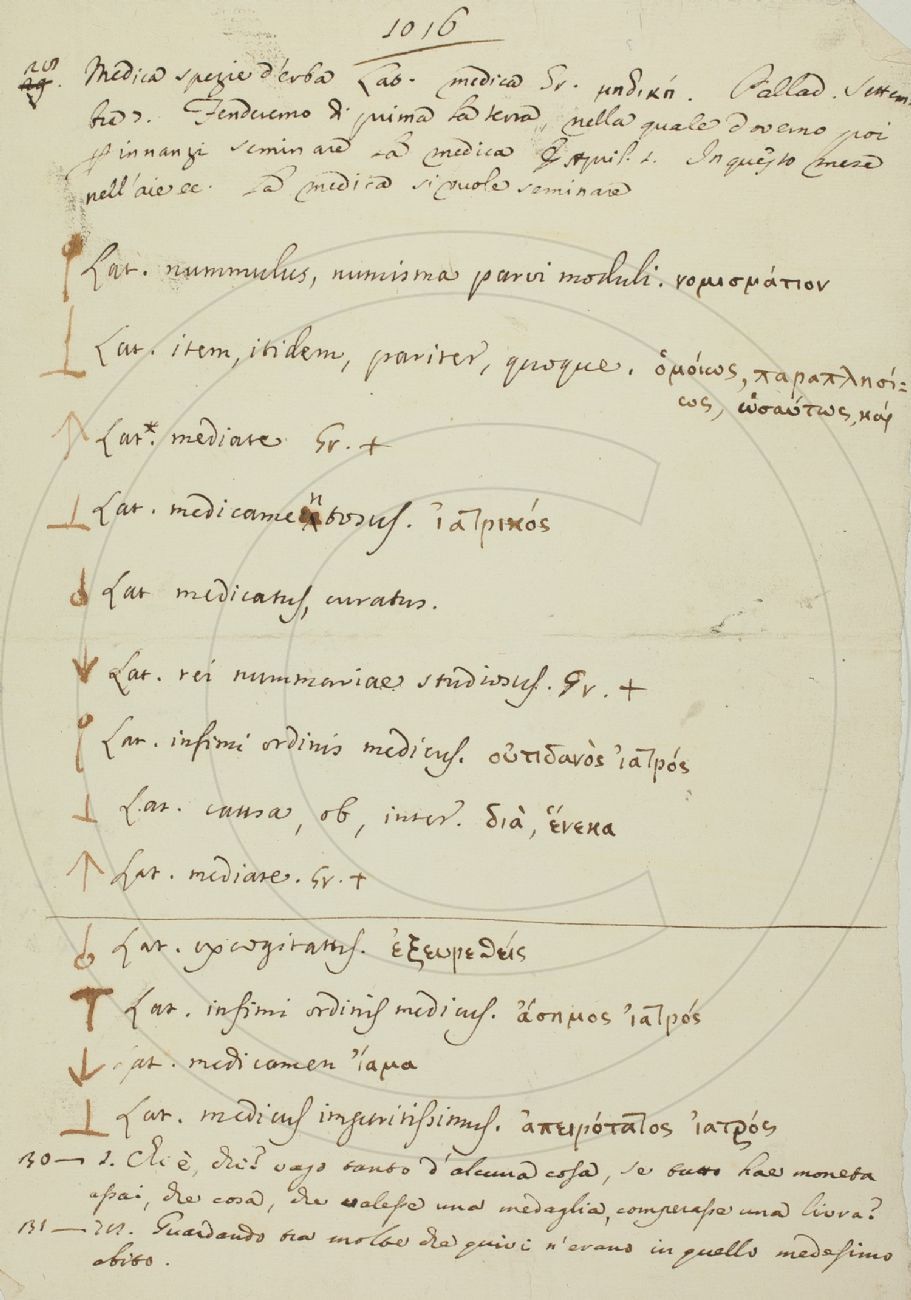 1016
28
29. Medica spezie d'erba Lat. medica Gr. μηδική. Pallad. Settem.
bre 7. Fenderemo di prima la terra, nella quale dovemo poi
innanzi seminare la medica April. 1. In questo mese
nell'aie ec. La medica si vuole seminare
Lat. nummulus, numisma parvi moduli. νομισμάτιον
Lat. item, itidem, pariter, quoque. ὁμόιως, παραπλησί=
ως, ὡσαύτως, καί
Lat*. mediate Gr. +
Lat. medicamentosus. ἰατρικός
Lat medicatus, curatus.
Lat. rei nummariae studiosus. Gr. +
Lat. infimi ordinis medicus. οὐτιδανὸς ἰατρός
Lat. causa, ob, inter. διὰ, ἕνεκα
Lat. mediate. Gr. +
Lat. excogitatus. ἐξευρεθείς
Lat. infimi ordinis medicus. ἄσημος ἰατρός
Lat. medicamen ἴαμα
Lat. medicus imperitissimus. ἀπειρότατος ἰατρός
130 — 1. Chi è, che? vago tanto d'alcuna cosa, se tutto hae moneta
assai, che cosa, che valesse una medaglia, comperasse una livra?
131 — Guardando tra molte che quivi n'erano in quello medesimo
abito.